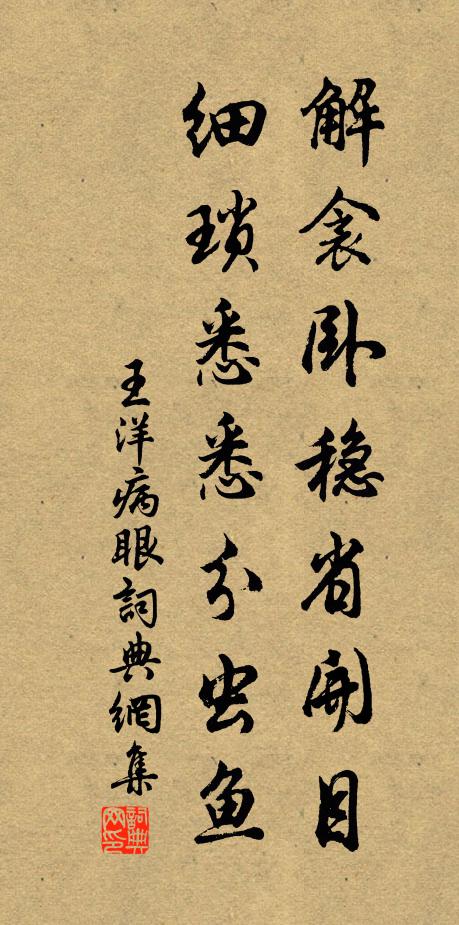 解衾卧稳省开目
细琐悉悉分虫鱼
王洋病眼詞典網集
詞典网印